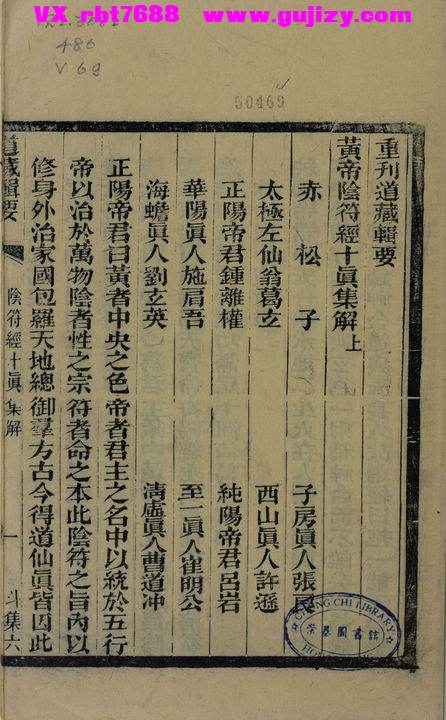 VX rbt7688 www.gujizy.com
486
V 69
50469
重刊道藏輯要
黃帝陰符經十眞集解上
赤松子 子房眞人張良
太極左仙翁葛玄 西山眞人許遜
正陽帝君鍾離權 純陽帝君呂岩
華陽眞人施肩吾 至一眞人崔明公
海蟾眞人劉玄英 清虛眞人曹道冲
正陽帝君曰黃者中央之色帝者君主之名中以統於五行
帝以治於萬物陰者性之宗符者命之本此陰符之旨內以
修身外治家國包羅天地總御羣方古今得道仙眞皆因此
道藏輯要 陰符經十眞集解 一 斗集六
CHUNG CHI LIBRARY
崇基圖書館